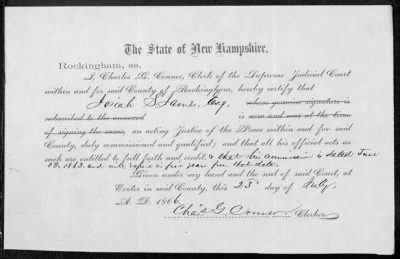 The State of New Hampshire.
Rockingham, ss.
I, Charles G. Conner, Clerk of the Supreme Judicial Court
within and for said County of Rockingham, hereby certify that
Josiah S. James, Esq. whose genuine signature is
subscribed to the annexed is now and was at the time
of signing the same, an acting Justice of the Peace within and for said
County, duly commissioned and qualified; and that all his official acts as
such are entitled to full faith and credit & that his commission is dated June
1863. and will expire in five years from that date.
Given under my hand and the seal of said Court, at
Exeter in said County, this 23d day of July,
A. D. 1866.
Chas G. Conner Clerk